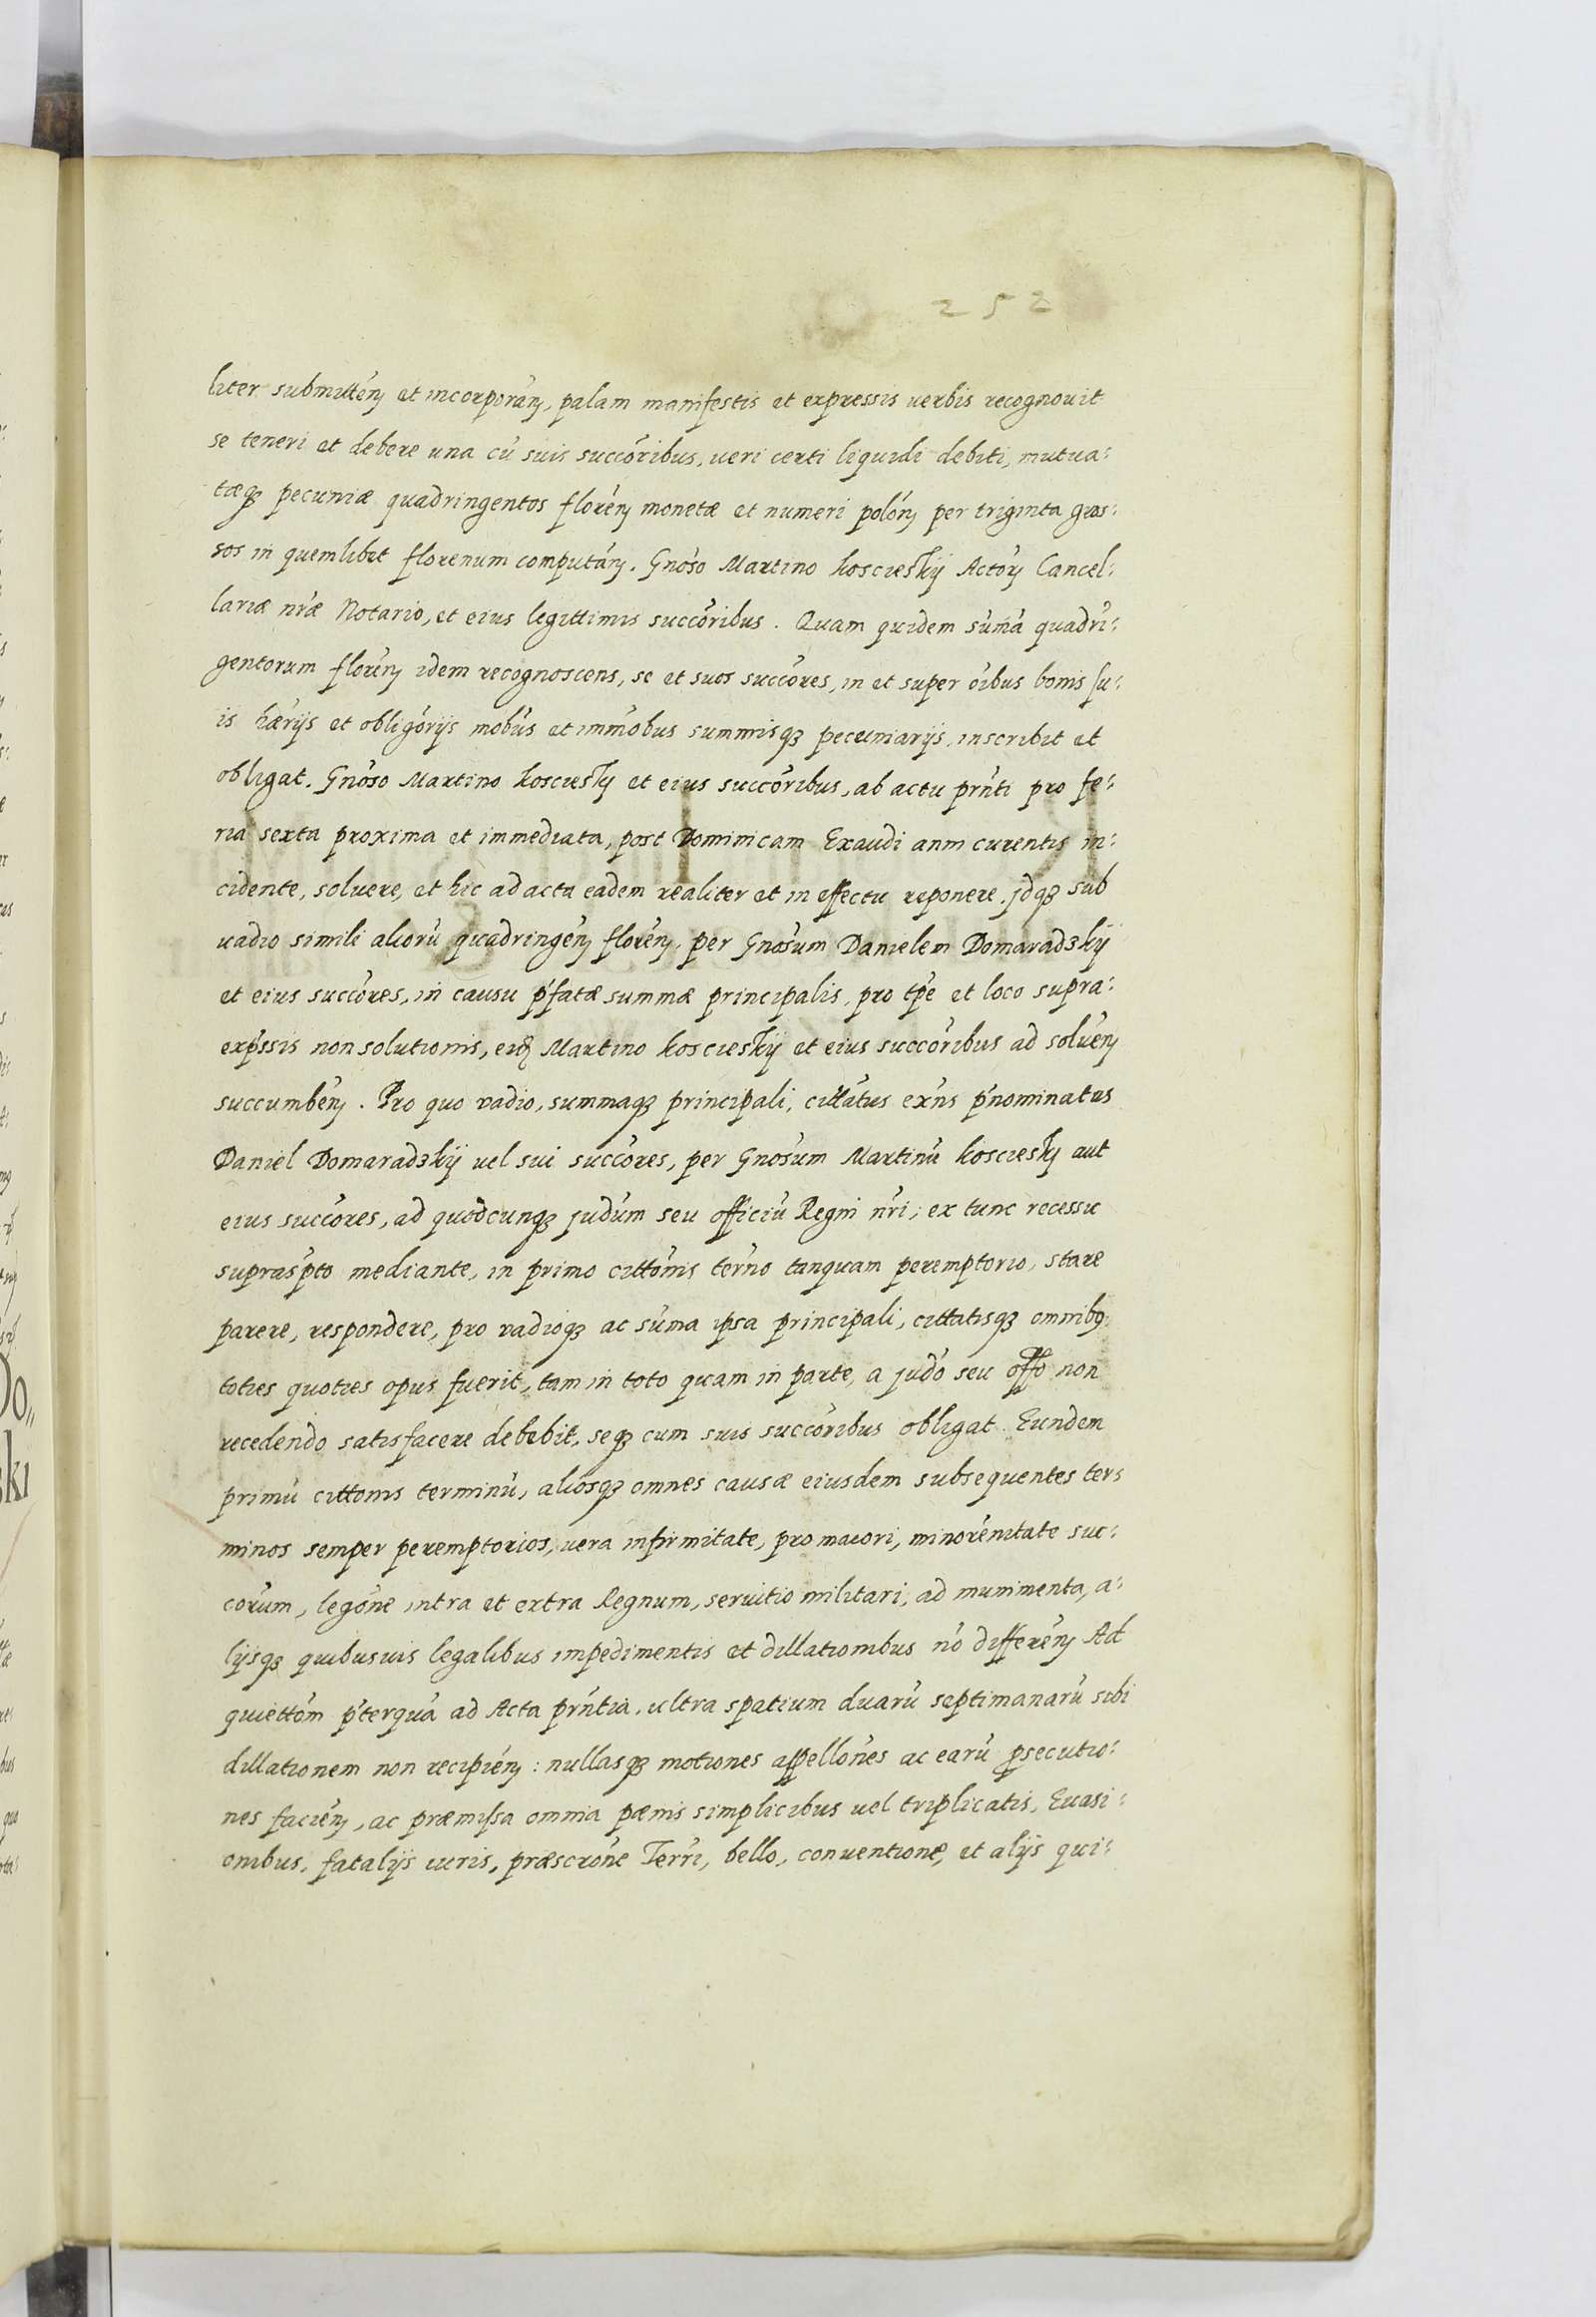 252
liter submitteñ et incorporañ, palam manifestis et expressis verbis recognovit
se teneri et debere una cū suis succōribus, veri certi liquidi debiti, mutua:
tæq3 pecuniæ quadringentos floreñ monetæ et numeri poloñ per triginta gros:
sos in quemlibet florenum computañ. Gnōso Martino koscieskÿ Actorꝫ Cancel:
lariæ nr̄æ Notario, et eius legittimis succōribus. Quam quidem sum̄ā quadri:
gentorum floreñ idem recognoscens, se et suos succōres, in et super oībus bonis su:
is hæriis et obligōrijs mobūs et imm̄obus summisq3 pecuniarijs, inscribit et
obligat. Gnōso Martino koscieskÿ et eius succōribus, ab actu prn̄ti pro fe:
ria sexta proxima et immediata, post Dominicam Exaudi anni curentis in:
cidente, soluere, et hic ad acta eadem realiter et in effectu reponere. jdq3 sub
vadio simili aliorū quadringeñ floreñ, per Gnōsum Danielem Domaradzkÿ
et eius succōres, in causu p̄fatæ summæ principalis, pro tp̄e et loco supra:
exp̄ssis non solutionis, eidꝫ Martino koscieskÿ et eius succōribus ad solueñ
succumbeñ. Pro quo vadio, summaq3 principali, cittātus exn̄s p̄nominatus
Daniel Domaradzkÿ vel sui succōres, per Gnōsum Martinū koscieskÿ aut
eius succōres, ad quodcunq3 judūm seu officiū Regni nr̄i, ex tunc recessu
supras̄pto mediante, in primo cittōnis ter̄no tanquam peremptorio, stare
parere, respondere, pro vadioq3 ac sum̄a ipsa principali, cittatisq3 omnibꝯ
toties quoties opus fuerit, tam in toto quam in parte, a judō seu offo non
recedendo satisfacere debebit, seq3 cum suis succōribus obligat. Eundem
primū cittonis terminū, aliosq3 omnes causæ eiusdem subsequentes ter:
minos semper peremptorios, vera infirmitate, pro maiori, minorēnitate suc:
cōrum, legōne intra et extra Regnum, servitio militari, ad munimenta, a:
lijsq3 quibusuis legalibus impedimentis et dillationibus nō differeñ Ad
quiettōm p̄terquā ad Acta prn̄tia, ultra spatium duarū septimanarū sibi
dillationem non recipieñ: nullasq3 motiones appellōnes ac earū ꝓsecutio:
nes facieñ, ac præmissa omnia pænis simplicibus vel triplicatis, Evasi:
onibus, fatalijs iuris, præscrōne Ter̄ri, bello, conventione, et alijs qui: